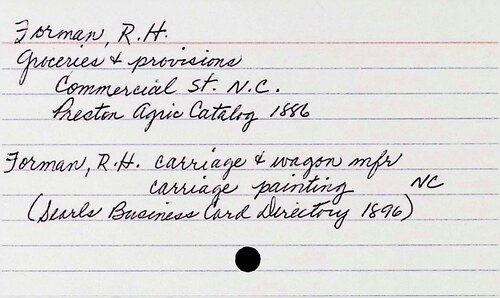 Forman, R.H.
Groceries & provisions
Commercial St. N.C.
Preston Agric Catalog 1886
Forman, R.H. carriage & wagon mfr
carriage painting NC
(Searls Business Card Directory 1896)